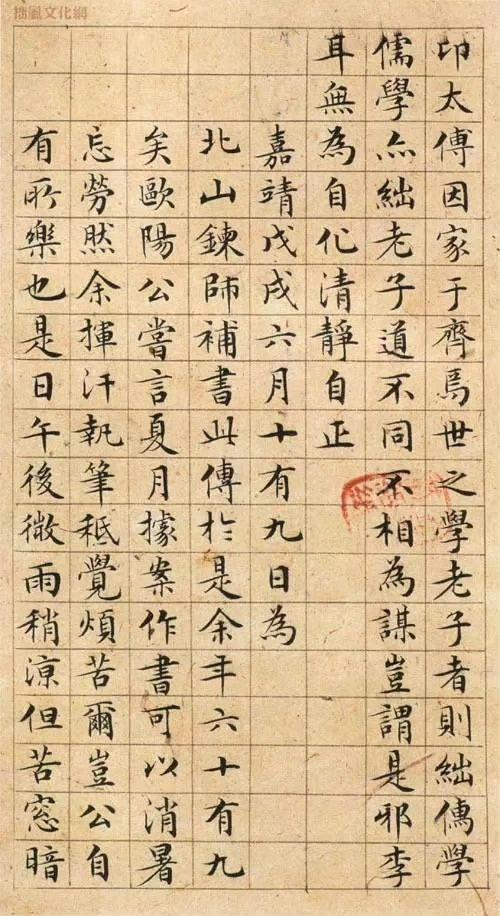 拙風文化網
卬太傅因家于齊焉世之學老子者則絀儒學
儒學亦絀老子道不同不相為謀豈謂是邪李
耳無為自化清靜自正
嘉靖戊戌六月十有九日為
北山鍊師補書此傳於是余年六十有九
矣歐陽公嘗言夏月據案作書可以消暑
忘勞然余揮汗執筆秪覺煩苦爾豈公自
有所樂也是日午後微雨稍涼但苦窓暗